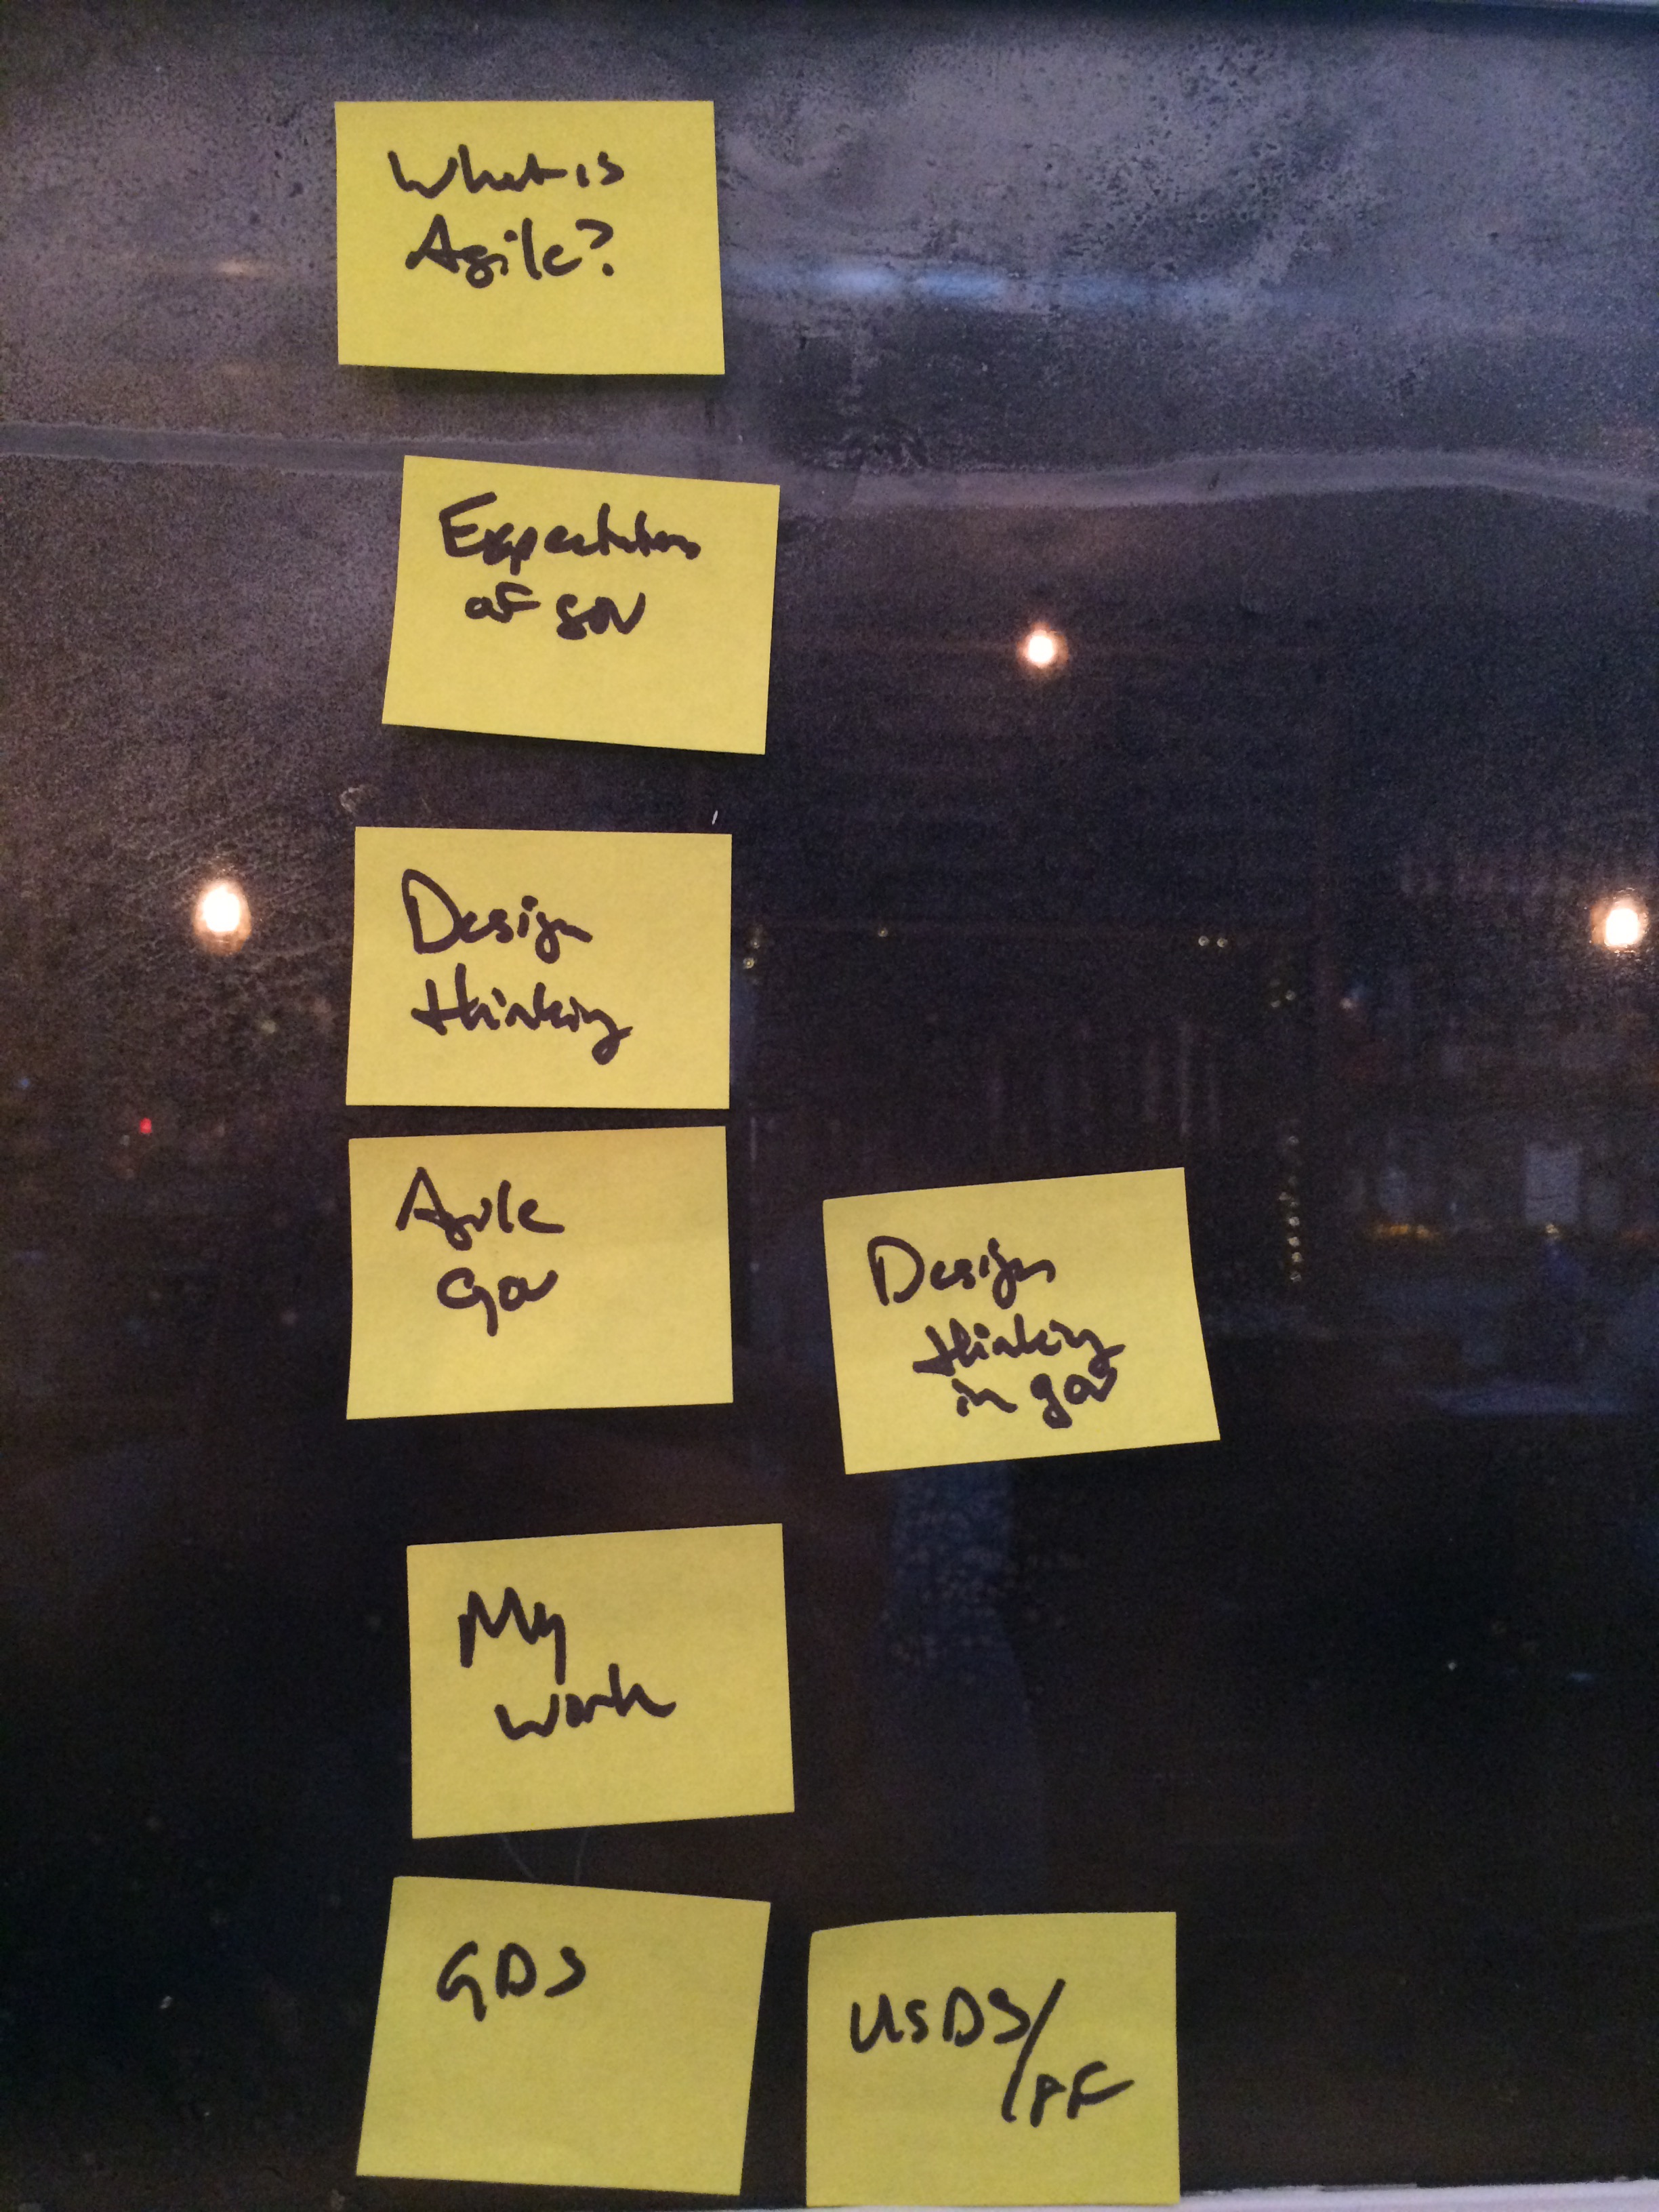 What is
Agile?
Expectations
of gov
Design
thinking
Agile
Gov
Design
thinking
in gov
My
work
GDS
USDS/
18F